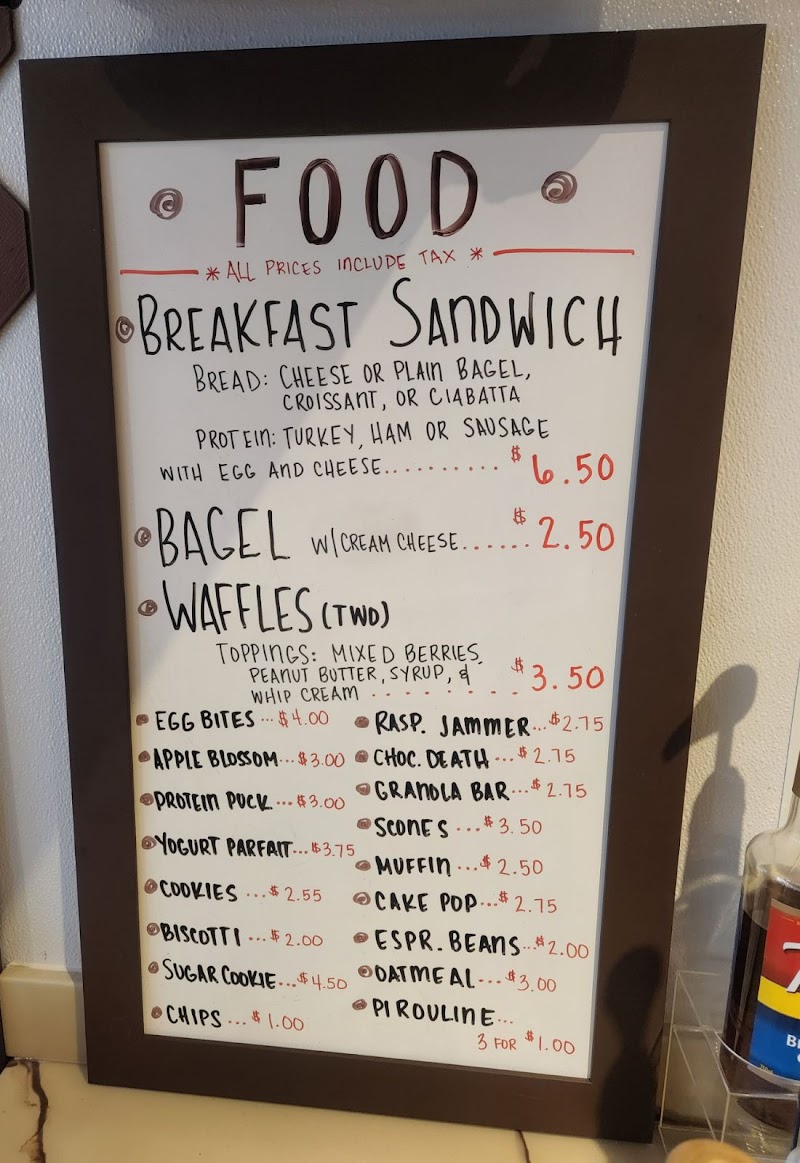 FOOD
* ALL PRICES INCLUDE TAX *
BREAKFAST SANDWICH
BREAD: CHEESE OR PLAIN BAGEL,
CROISSANT, OR CIABATTA
PROTEIN: TURKEY, HAM OR SAUSAGE
WITH EGG AND CHEESE.......... $6.50
BAGEL W/CREAM CHEESE...... $2.50
WAFFLES (TWO)
TOPPINGS: MIXED BERRIES,
PEANUT BUTTER, SYRUP, &
WHIP CREAM ........ $3.50
EGG BITES ... $4.00
APPLE BLOSSOM... $3.00
PROTEIN PUCK ... $3.00
YOGURT PARFAIT... $3.75
COOKIES ... $2.55
BISCOTTI ... $2.00
SUGAR COOKIE... $4.50
CHIPS ... $1.00
RASP. JAMMER... $2.75
CHOC. DEATH ... $2.75
GRANOLA BAR... $2.75
SCONES ... $3.50
MUFFIN ... $2.50
CAKE POP... $2.75
ESPR. BEANS... $2.00
OATMEAL... $3.00
PIROULINE...
3 FOR $1.00